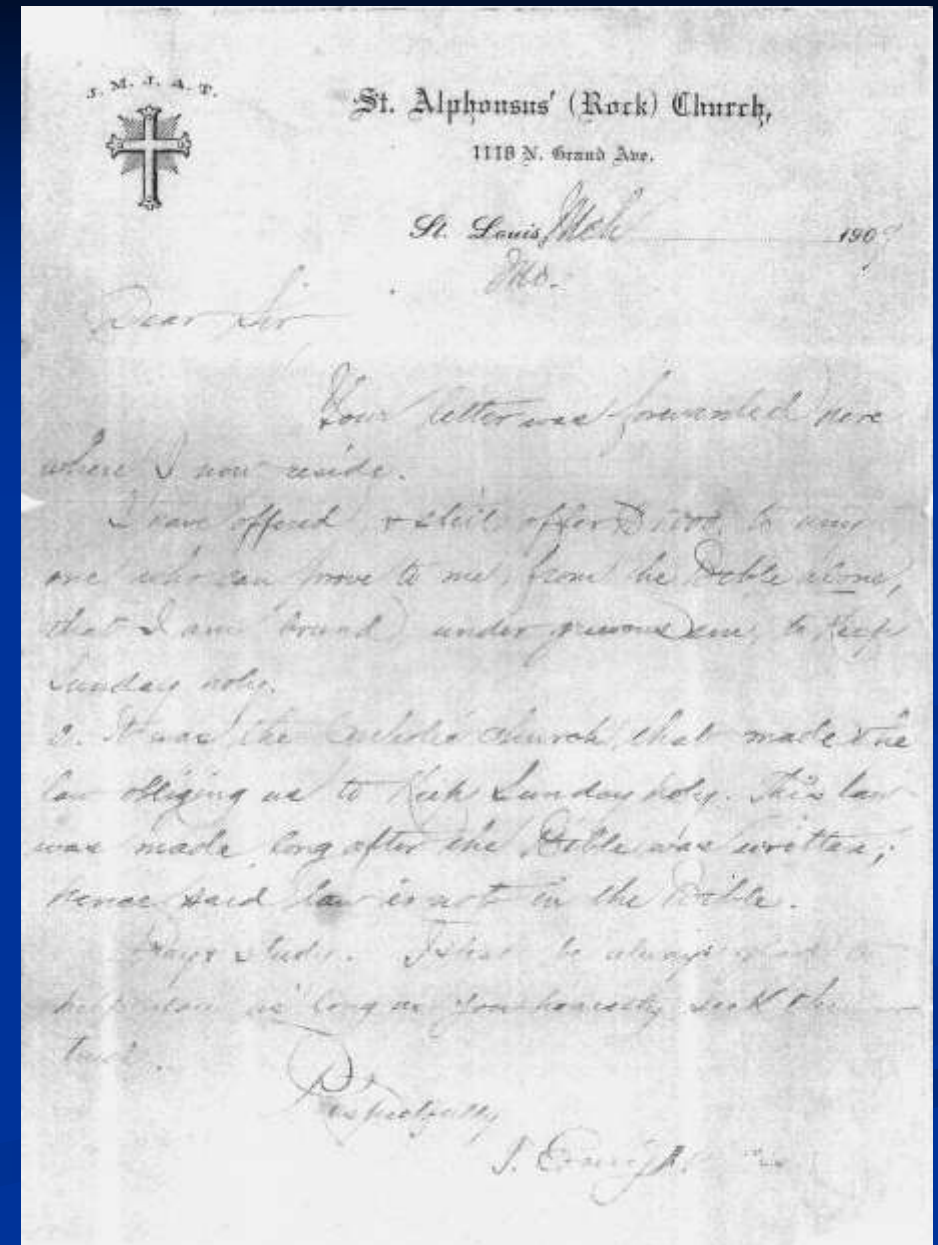 J. M. J. A. T.
St. Alphonsus' (Rock) Church,
1118 N. Grand Ave.
St. Louis, Mch 190
Mo.
Dear Sir
Your letter was forwarded here
where I now reside.
I have offered & still offer $1000 to any
one who can prove to me, from the Bible alone,
that I am bound, under grievous sin, to keep
Sunday holy.
It was the Catholic church that made the
law obliging us to keep Sunday holy. This law
was made long after the Bible was written;
hence said law is not in the Bible.
Pray & study. I shall be always glad to
help as long as you honestly seek the
Respectfully